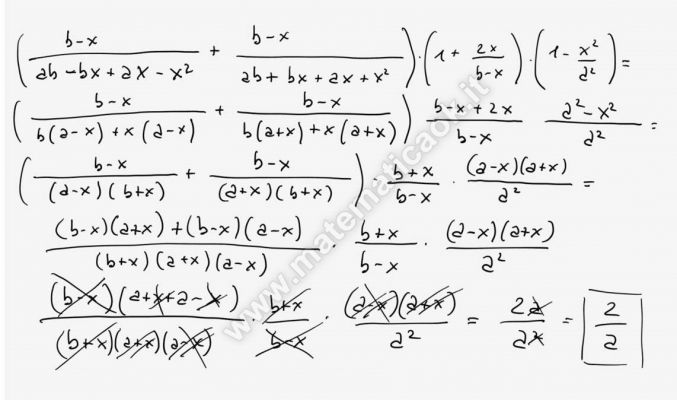 ( (b-x)/(ab-bx+ax-x²) + (b-x)/(ab+bx+ax+x²) ) · (1+ 2x/(b-x)) · (1- x²/a²) =
( (b-x)/(b(a-x)+x(a-x)) + (b-x)/(b(a+x)+x(a+x)) ) (b-x+2x)/(b-x) (a²-x²)/a² =
( (b-x)/((a-x)(b+x)) + (b-x)/((a+x)(b+x)) ) · (b+x)/(b-x) · ((a-x)(a+x))/a² =
((b-x)(a+x)+(b-x)(a-x))/((b+x)(a+x)(a-x)) · (b+x)/(b-x) · ((a-x)(a+x))/a²
((b-x)(a+x+a-x))/((b+x)(a+x)(a-x)) · (b+x)/(b-x) · ((a-x)(a+x))/a² = 2a/a² = 2/a
www.matematicaok.it